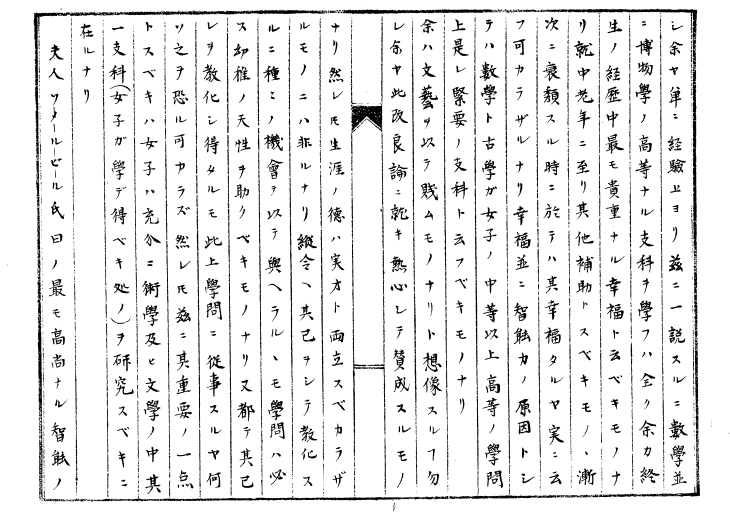 シ余ヤ単ニ經驗上ヨリ茲ニ一説スルニ數學並
ニ博物學ノ高等ナル支科ヲ學フハ全ク余カ終
生ノ経歴中最モ貴重ナル幸福ト云ベキモノナ
リ就中老年ニ至リ其他補助トスベキモノヽ漸
次ニ衰頽スル時ニ於テハ其幸福タルヤ実ニ云
フ可カラザルナリ幸福並ニ智能力ノ原因トシ
テハ數學ト古学ガ女子ノ中等以上高等ノ學問
上是レ緊要ノ支科ト云フベキモノナリ
余ハ文藝ヲ以テ賤ムモノナリト想像スルフ勿
レ余ヤ此改良論ニ就キ熱心シテ賛成スルモノ
ナリ然レ𪜈生涯ノ德ハ実才ト両立スベカラザ
ルモノニハ非ルナリ縦令ヘ其己ヲシテ教化ス
ルニ種ミノ機會ヲ以テ與ヘラルヽモ學問ハ必
ス幼稚ノ天性ヲ助クベキモノナリ又都テ其己
レヲ教化シ得タルモ此上學問ニ從事スルヤ何
ソ之ヲ恐ル可カラズ然レ𪜈茲ニ其重要ノ一点
トスベキハ女子ハ充分ニ術學及ヒ文學ノ中其
一支科(女子ガ學デ得ベキ処ノ)ヲ研究スベキニ
在ルナリ
夫人ワタールビール氏曰ノ最モ高尚ナル智能ノ